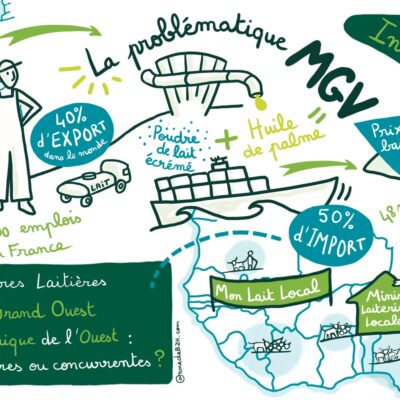 La problématique
MGV
In
40%
d'EXPORT
dans le monde
LAIT
Poudre
de lait
écrémé
+
Huile
de palme
Prix
ba
emplois
France
50%
d'IMPORT
48
res Laitières
Grand Ouest
ique de l'Ouest :
res ou concurrentes ?
Mon Lait Local
Mini
Laiterie
Locale